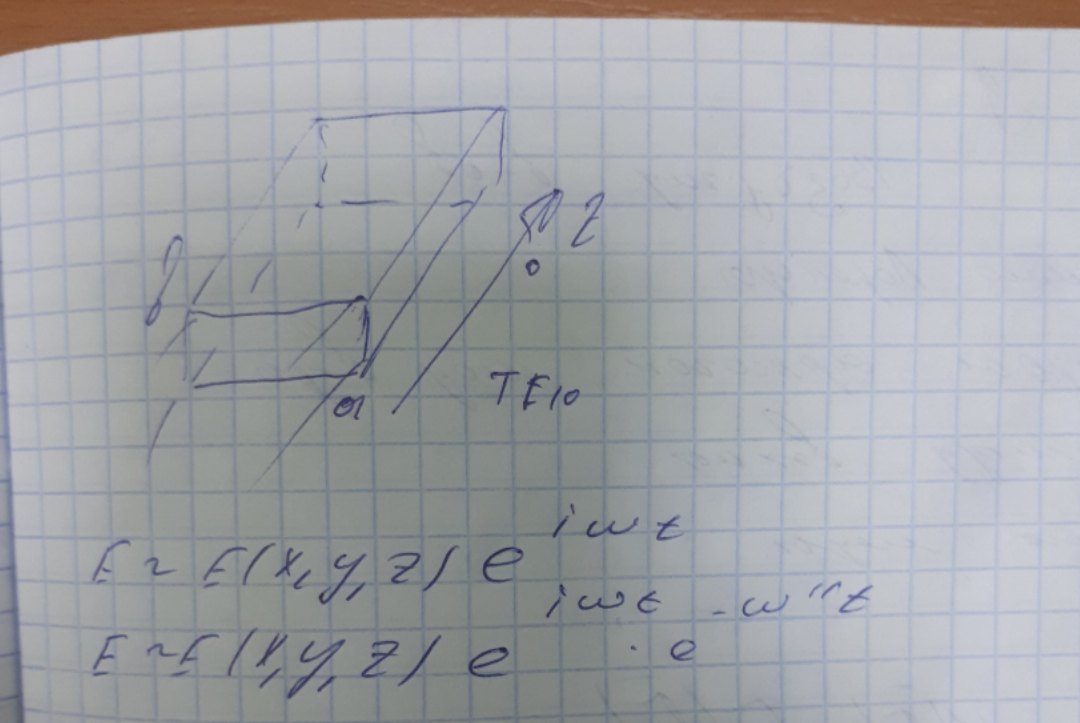 b
z
a
TE₁₀
E ~ E(x,y,z) e^{iωt}
E ~ E(x,y,z) e^{iωt} · e^{-ω''t}